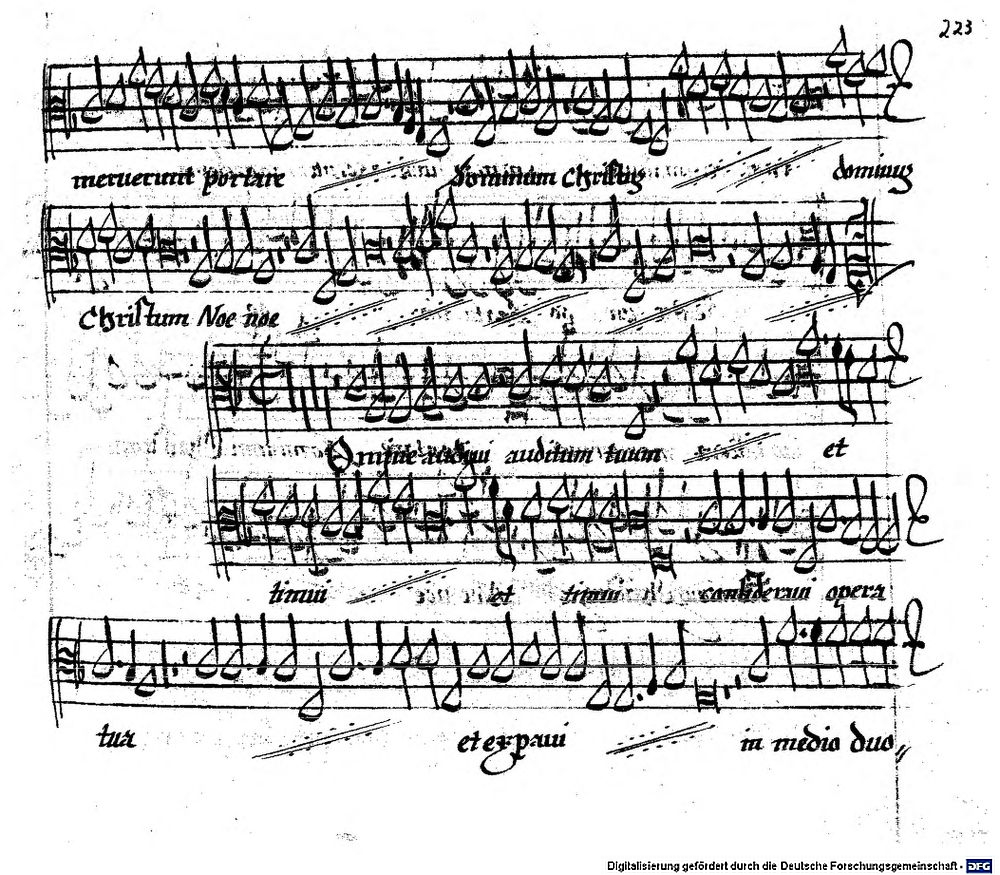 223
meruerunt portare dominum Christum dominum
Christum Noe noe
Domine audivi auditum tuum et
timui et timui consideravi opera
tua et expavi in medio duo„
Digitalisierung gefördert durch die Deutsche Forschungsgemeinschaft - DFG